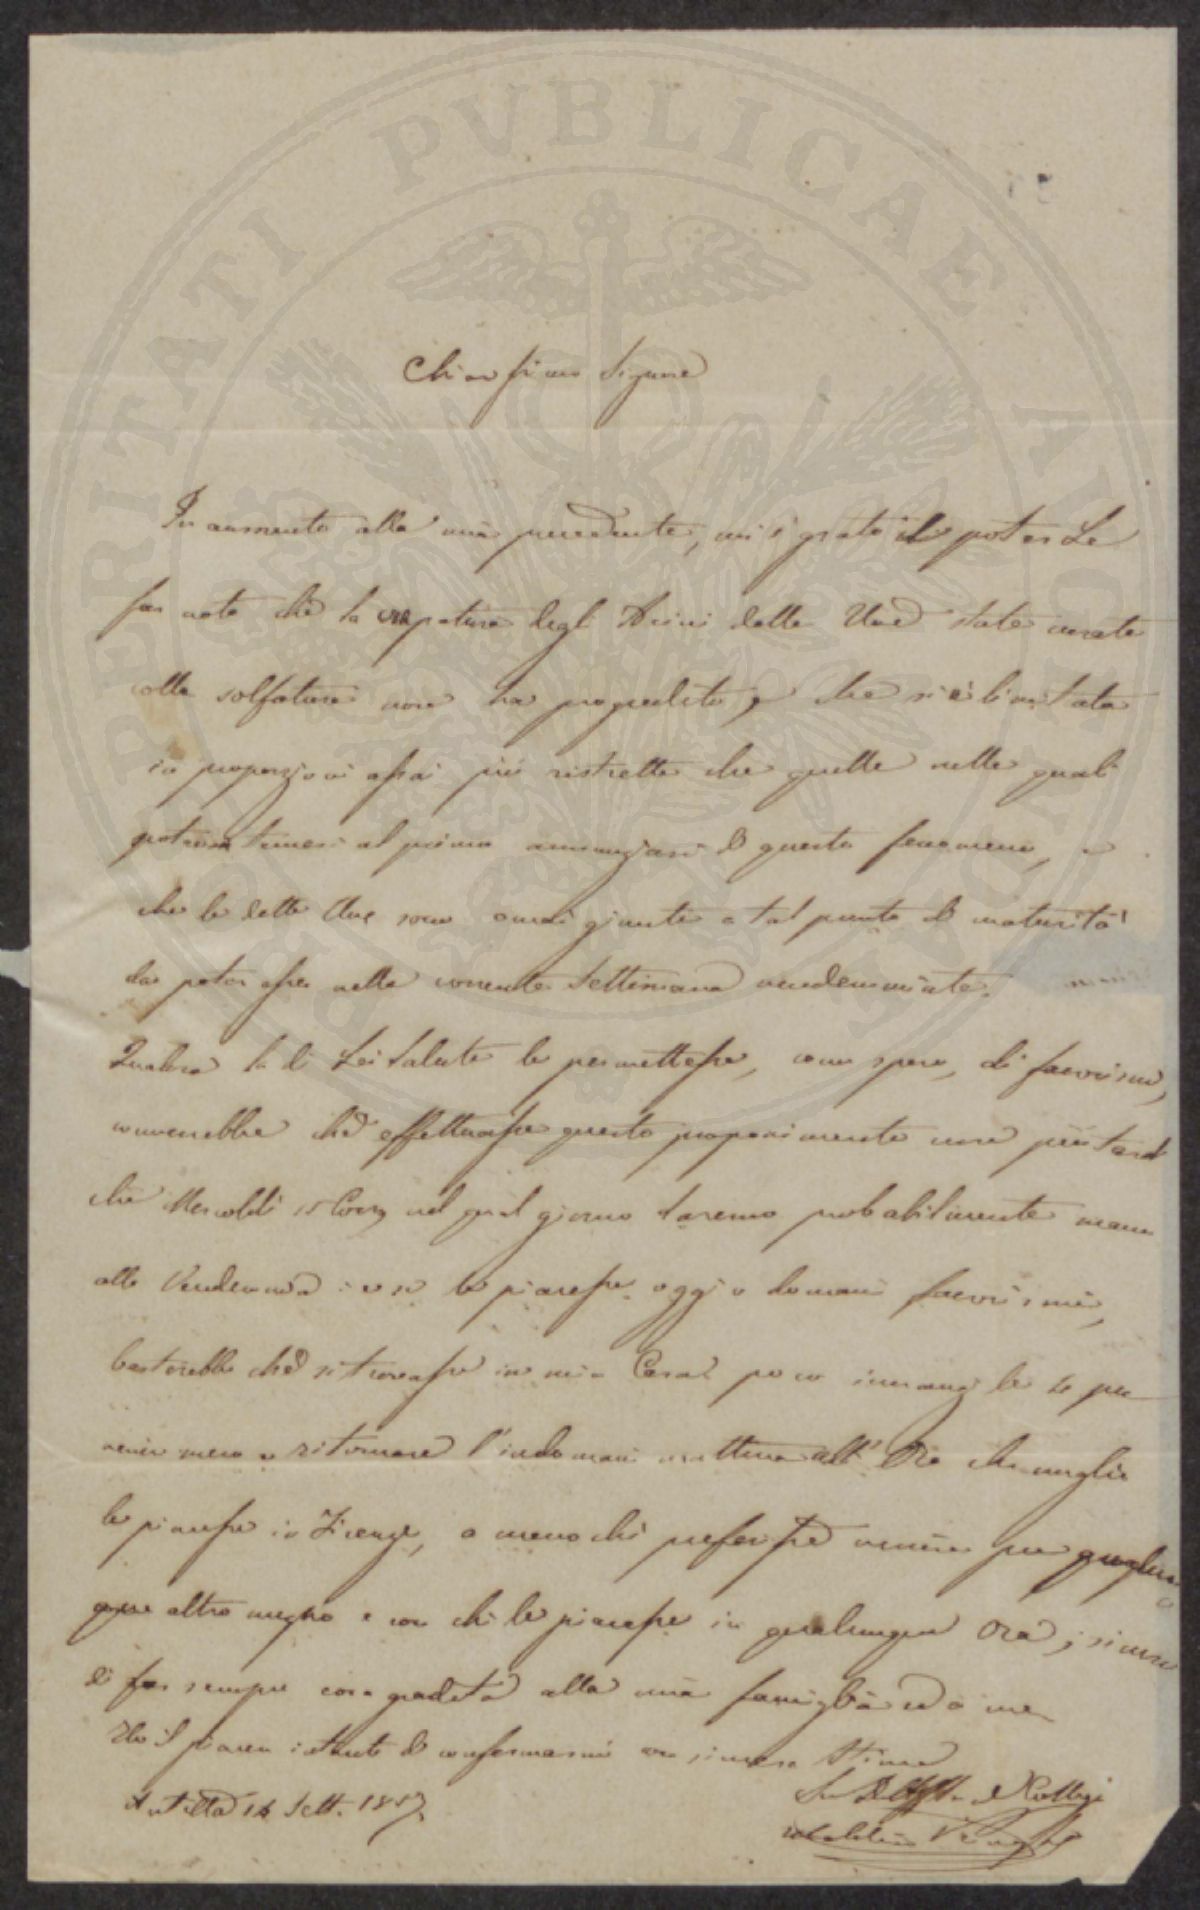 PROSPERITATI PVBLICAE AVGENDAE
Chiarissimo Signore
In aumento alla mia precedente, mi è grato il poterLe
far noto che la crepatura degl'Acini delle Uve state curate
colle solfature non ha progredito, e che si è limitata
in proporzioni assai più ristrette che quelle nelle quali
potevasi temere al primo annunziarsi di questo fenomeno, e
che le dette Uve sono omai giunte a tal punto di maturità
da poter esser nella corrente Settimana vendemmiate.
Qualora la di Lei Salute le permettesse, come spero, di favorirmi,
converrebbe che effettuasse questo proponimento non più tardi
che Mercoldì 15 Corr. nel qual giorno daremo probabilmente mano
alla Vendemmia: e se le piacesse oggi o domani favorirmi,
basterebbe che si trovasse in mia Casa poco innanzi le
venir meco e ritornare l'indomani mattina all'Ora che meglio
le piacesse in Firenze, a meno che preferisse venire per qualun
que altro mezzo e con chi le piacesse in qualunque Ora, sicuro
di far sempre cosa gradita alla mia famiglia ed a me
Ho il piacere intanto di confermarmi con sincera Stima
Antella 14 Sett. 1857